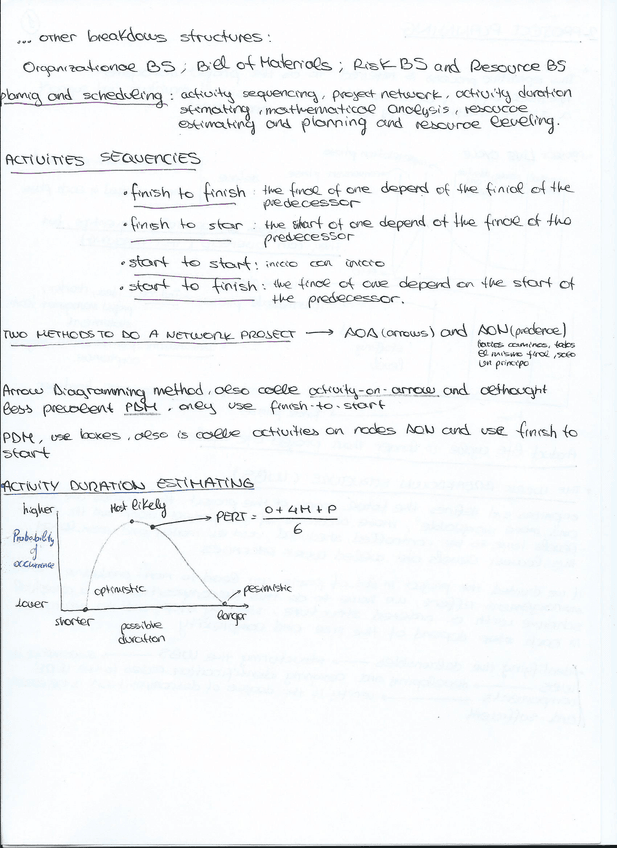 ... other breakdows structures:
Organizationae BS ; Biel of Materials ; Risk BS and Resource BS
planig and scheduling : activity sequencing, project network, activity duration
stimating, mathematical analysis, resource
estimating and planning and resource leveling.
ACTIVITIES SEQUENCIES
• finish to finish : the final of one depend of the finial of the
predecessor
• finish to star : the start of one depend of the final of the
predecessor
• start to start: inicio con inicio
• start to finish: the final of one depend on the start of
the predecessor.
TWO METHODS TO DO A NETWORK PROJECT → AOA (arrows) and AON (predence)
caminos, todos
el mismo final, solo
un principo
Arrow Diagramming method, also calle activity-on-arrow and althought
less prevalent PDM, only use finish-to-start
PDM, use boxes, also is calle activities on nodes AON and use finish to
start
ACTIVITY DURATION ESTIMATING
higher
Most likely
PERT = O + 4M + P
6
Probability
of
occurrence
optimistic
pesimistic
lower
shorter
larger
possible
duration